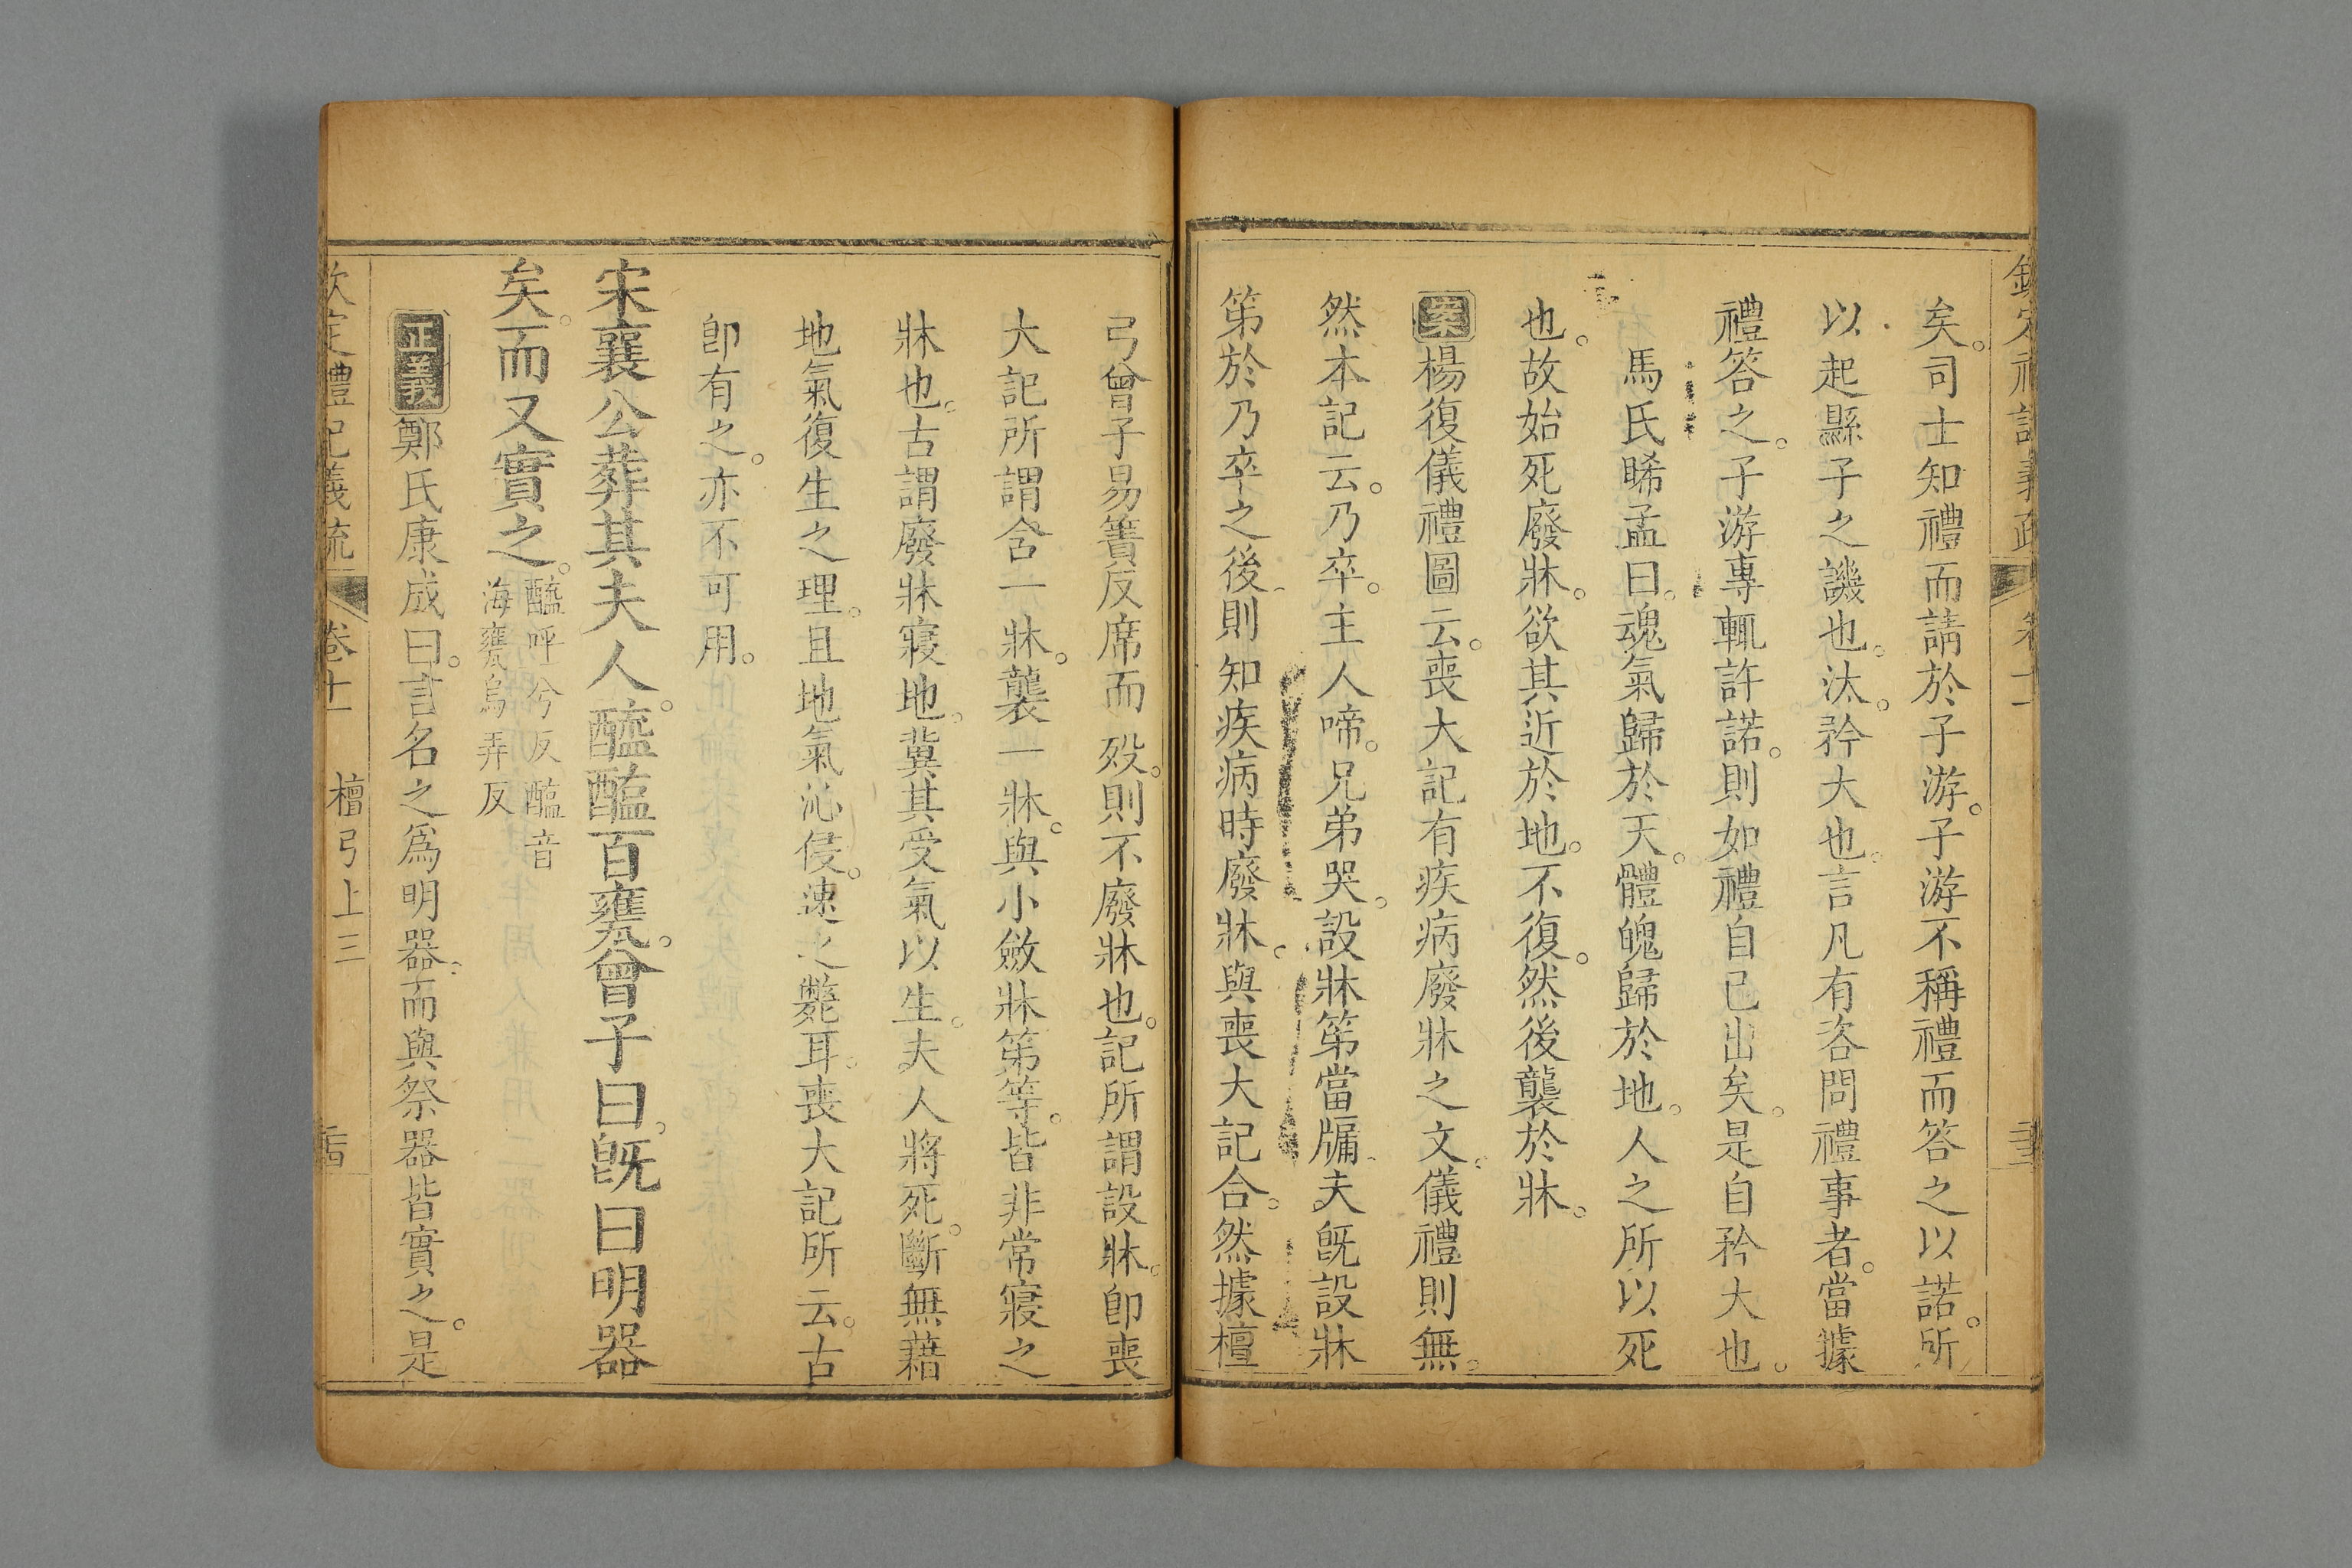 矣。司士知禮而請於子游。子游不稱禮而答之以諾。所
以起縣子之譏也。汰。矜大也。言凡有咨問禮事者。當據
禮答之。子游專輒許諾。則如禮自己出矣。是自矜大也。
馬氏晞孟曰。魂氣歸於天。體魄歸於地。人之所以死
也。故始死廢牀。欲其近於地。不復。然後襲於牀。
案楊復儀禮圖云。喪大記有疾病廢牀之文。儀禮則無。
然本記云。乃卒。主人啼。兄弟哭。設牀笫當牖。夫旣設牀
笫於乃卒之後。則知疾病時廢牀。與喪大記合。然據檀
弓曾子易簀反席而歿。則不廢牀也。記所謂設牀。卽喪
大記所謂含一牀。襲一牀。與小斂牀笫等。皆非常寢之
牀也。古謂廢牀寢地。冀其受氣以生。夫人將死。斷無藉
地氣復生之理。且地氣沁侵。速之斃耳。喪大記所云。古
卽有之。亦不可用。
宋襄公葬其夫人。醯醢百甕。曾子曰。旣曰明器
矣。而又實之。醯呼兮反醢音
海甕烏弄反
正義鄭氏康成曰。言名之爲明器。而與祭器皆實之。是
欽定禮記義疏 卷十一 檀弓上三